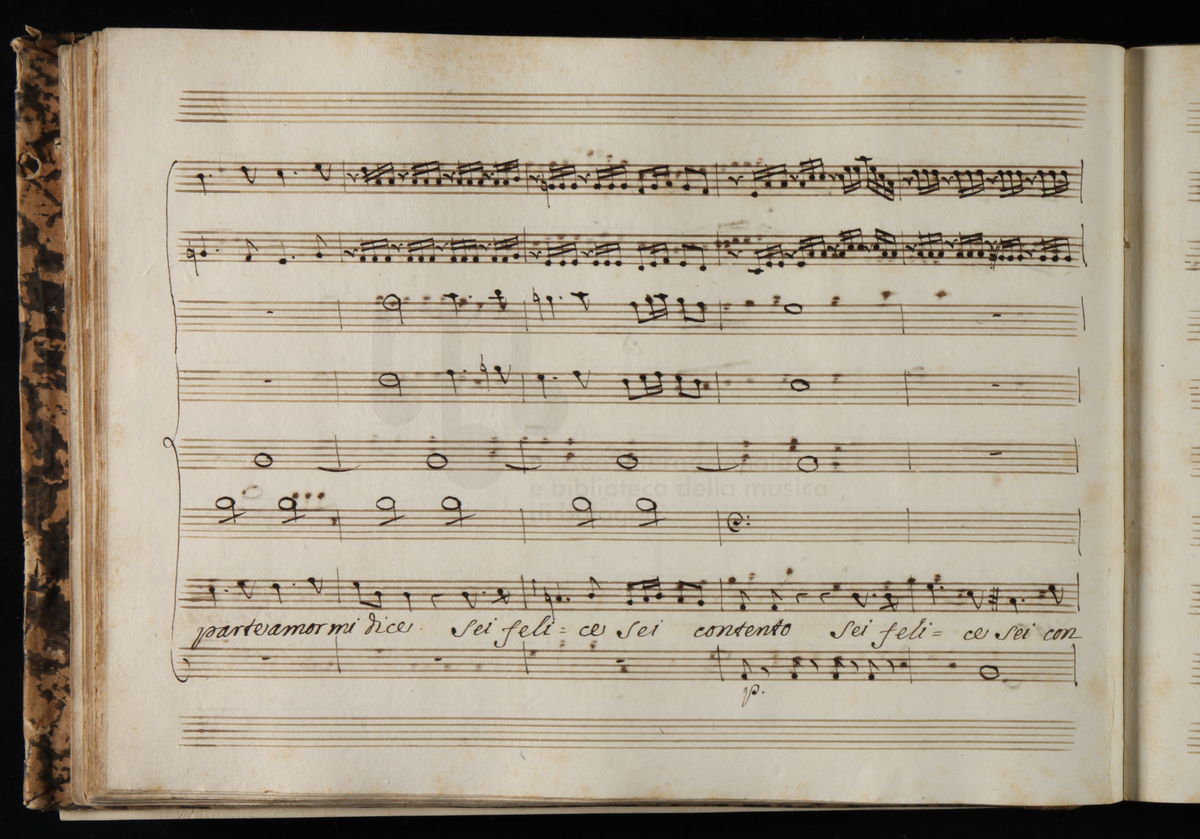 e biblioteca della musica
parte amor mi dice sei feli = ce sei contento sei feli = ce sei con
p.